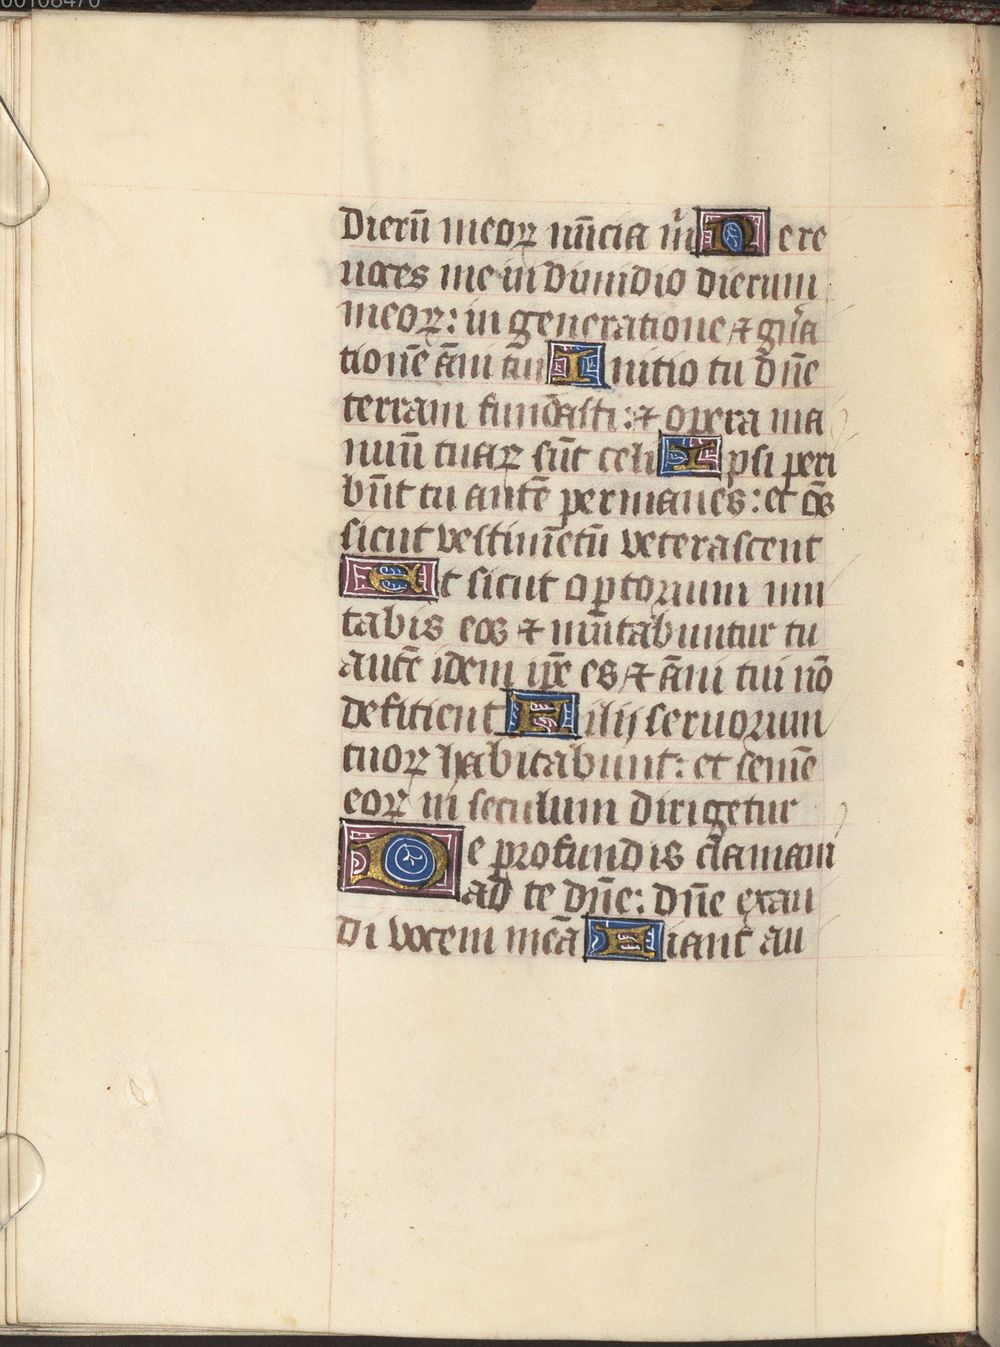 00108470
dierū meoꝝ nūcia m̊ Ne re
uoces me in dimidio dierum
meoꝝ: in generatione ⁊ gn̄a
tionē āni tui Initio tu dn̄e
terram fundasti: ⁊ opera ma
nuū tuaꝝ sūt celi Ipsi peri
būt tu autē permanes: et oēs
sicut vestimētū veterascent
Et sicut optorium mu
tabis eos ⁊ mutabuntur tu
autē idem ip̄e es ⁊ āni tui nō
deficient Filij seruorum
tuoꝝ habitabunt: et semē
eoꝝ in seculum dirigetur
De profundis clamaui
ad te dn̄e: dn̄e exau
di vocem meā Fiant au